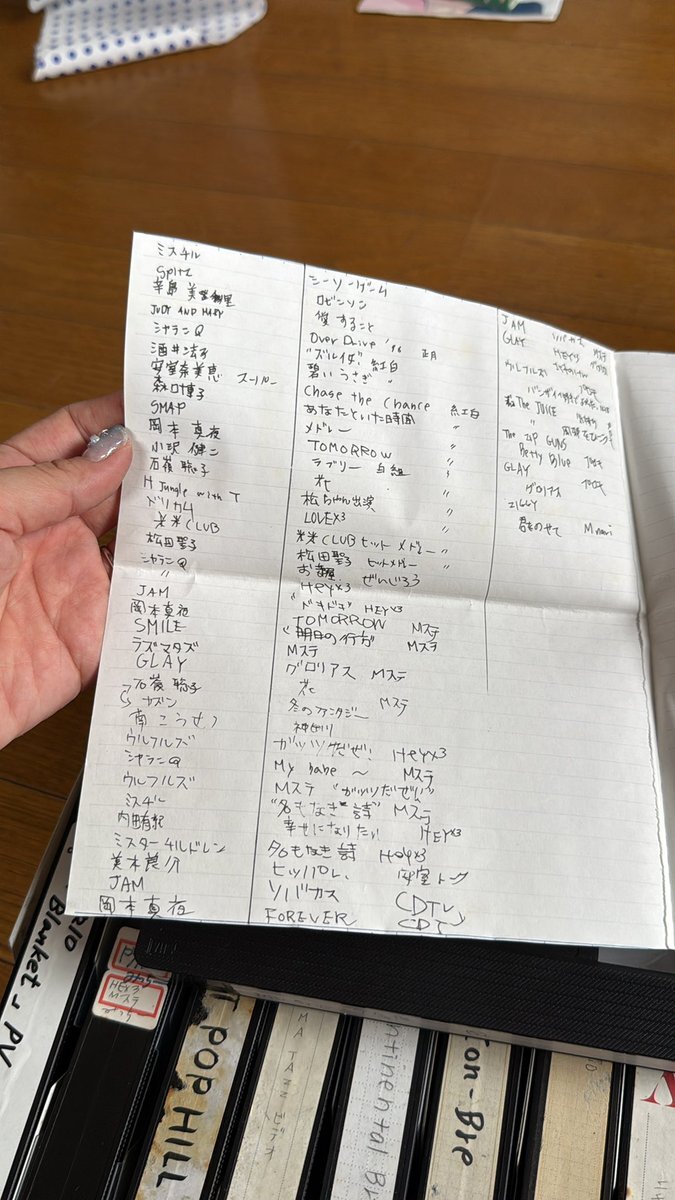 ミスチル
Spitz
辛島 美登里
JUDY AND MARY
シャランQ
酒井法子
安室奈美恵 スーパー
森口博子
SMAP
岡本 真夜
小沢 健二
石嶺 聡子
H Jungle with T
ドリカム
米米CLUB
松田聖子
シャランQ
〃
JAM
岡本真夜
SMILE
ラズマタズ
GLAY
石嶺 聡子
カズン
南こうせつ
ウルフルズ
シャランQ
ウルフルズ
ミスチル
内田有紀
ミスターチルドレン
JAM
岡本真夜
シーソーゲーム
ロビンソン
愛すること
Over Drive '96 正月
"ズルイ女" 紅白
碧いうさぎ 〃
Chase the Chance 紅白
あなたといた時間 〃
メドレー 〃
TOMORROW 〃
ラブリー 白組 〃
花 〃
松ちゃん出演 〃
LOVE×3 〃
米米CLUB ヒットメドレー 〃
松田聖子 ヒットメドレー 〃
ぜんじろう
Hey×3
ドキドキ HEY×3
TOMORROW Mステ
"明日の行方" Mステ
Mステ
グロリアス Mステ
花
冬のファンタジー Mステ
神田川
ガッツだぜ! HEY×3
My babe 〜 Mステ
Mステ "ガッツだぜ!!"
"名もなき詩" Mステ
幸せになりたい HEY×3
名もなき詩 Hey×3
ヒッパレ、 安室トーク
ソバカス CDTV
FOREVER CDT
JAM ソバカス Mステ
GLAY HEY×3 グロリアス
ウルフルズ
The JUICE
The ZIP GUNS
Betty Blue
GLAY
グロリアス
ZIGGY
君をのせて
Blanket PV
HEY×3
Mステ
POP HILL